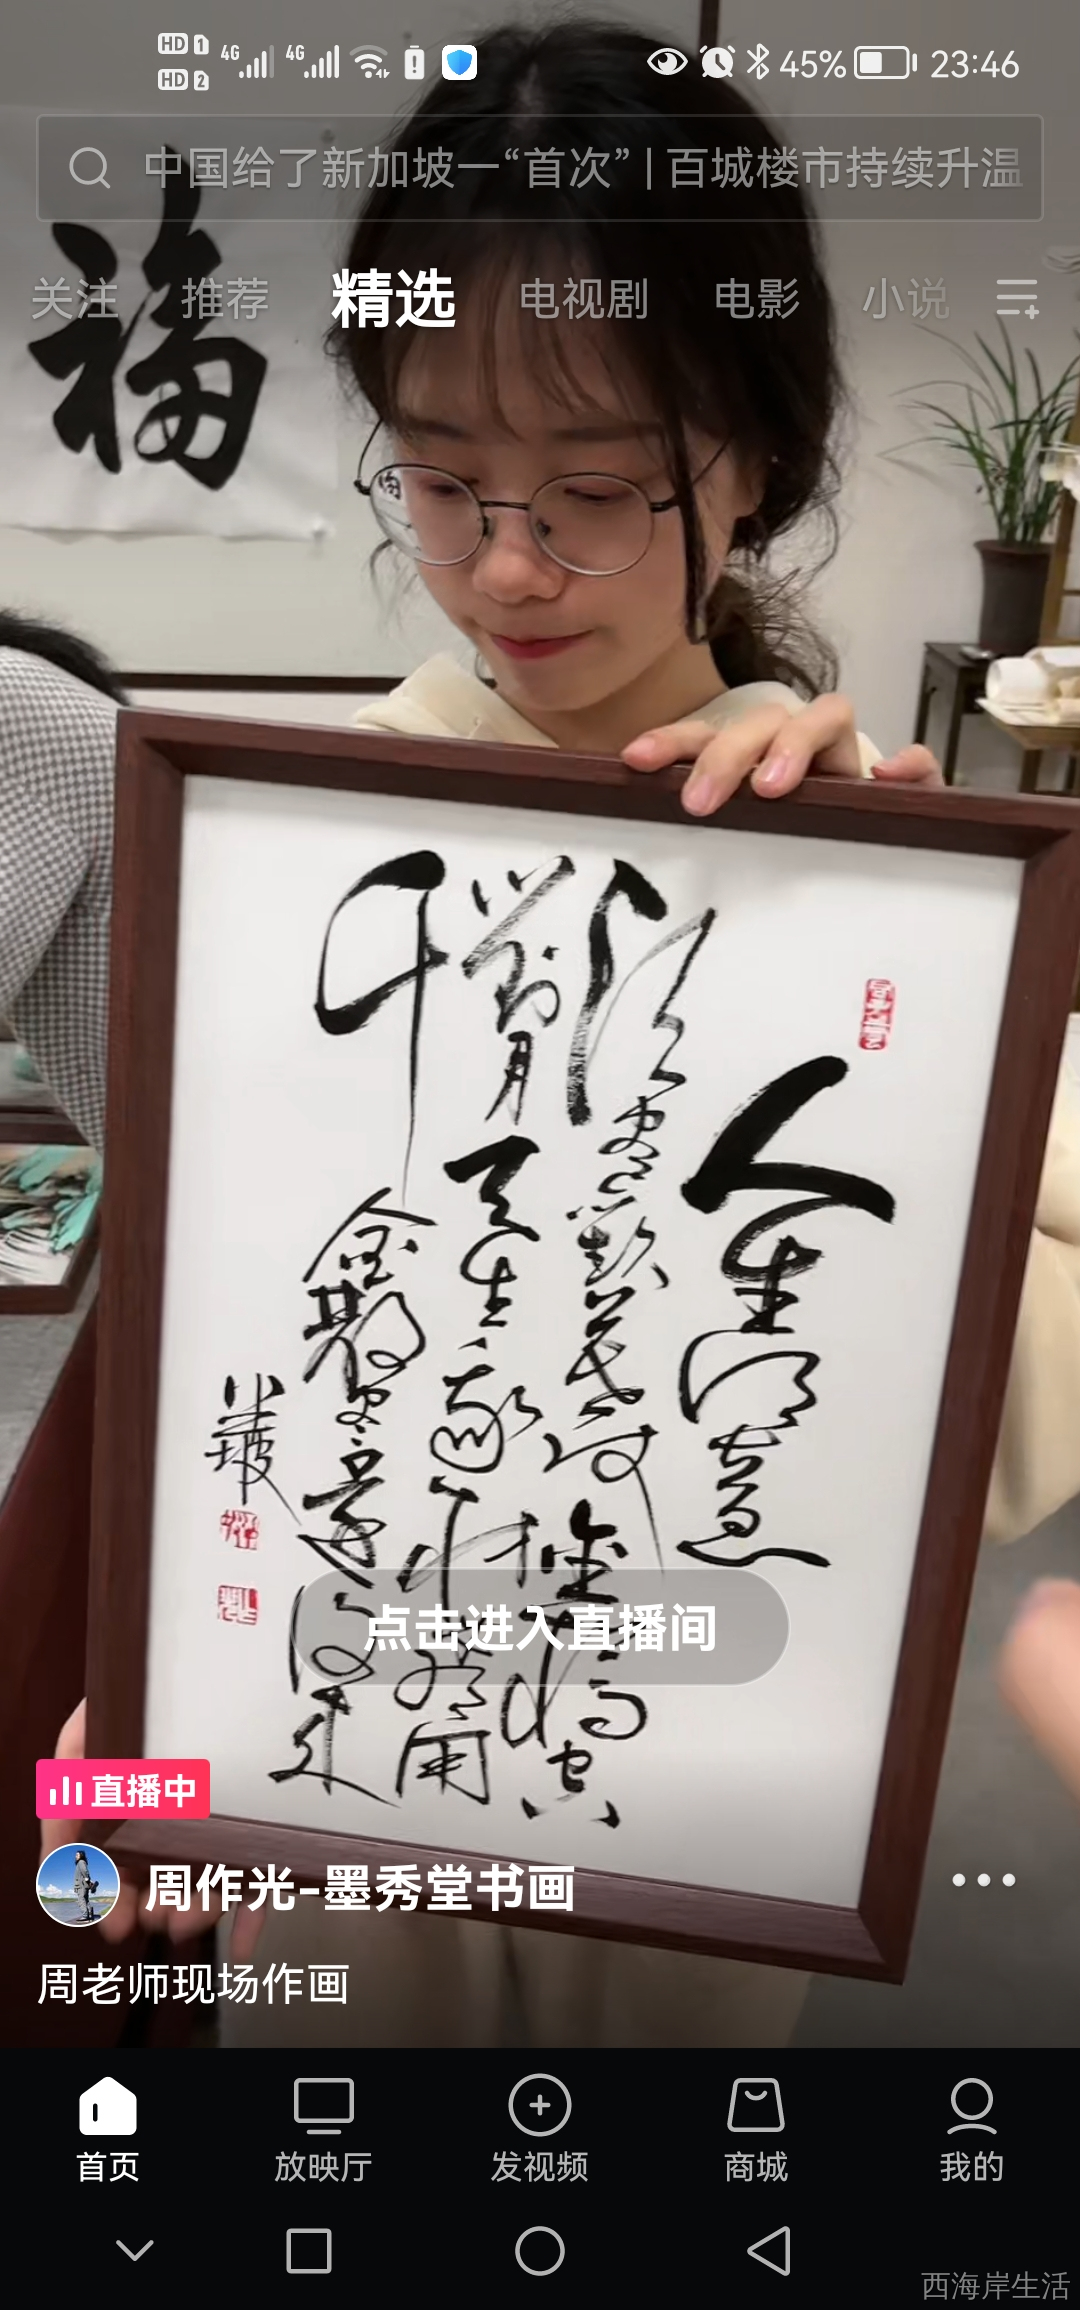 HD 1 4G 4G 45% 23:46
HD 2
中国给了新加坡一“首次” | 百城楼市持续升温
关注 推荐 精选 电视剧 电影 小说
福
人生得意
须尽欢莫使金樽空
对月天生我材必有用
千金散尽还复来
点击进入直播间
直播中
周作光-墨秀堂书画
周老师现场作画
首页 放映厅 发视频 商城 我的
西海岸生活